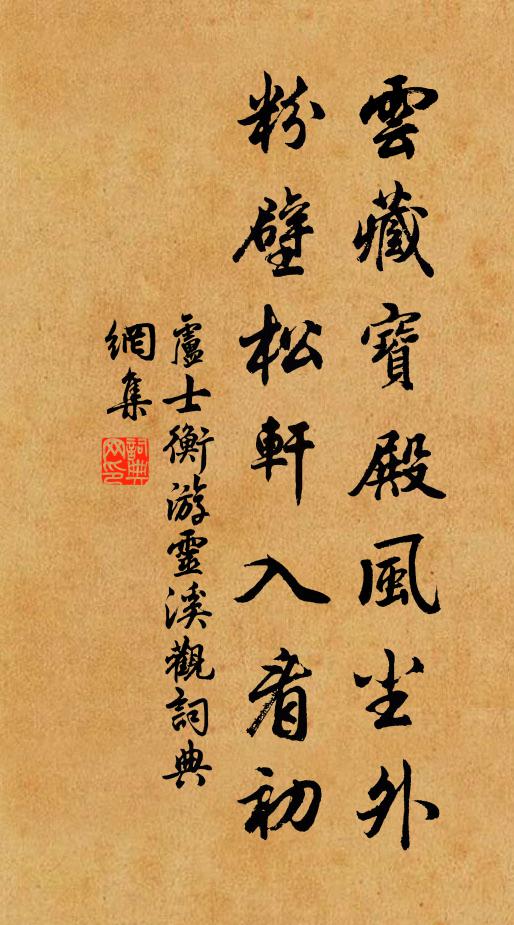 雲藏寶殿風尘外
粉壁松軒入看初
盧士衡游靈溪觀詞典
網集
詞典
网印